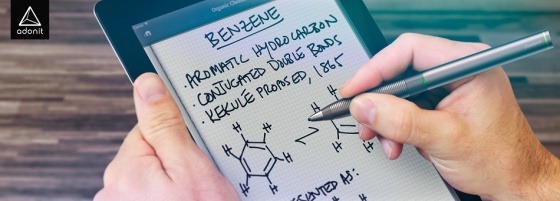 adonit
Organic Che
BENZENE
· AROMATIC HYDROCARBON
· CONJUGATED DOUBLE BONDS
· KEKULE PROPOSED, 1865
H H
H H
H H
H
H
H
ESENTED AS: